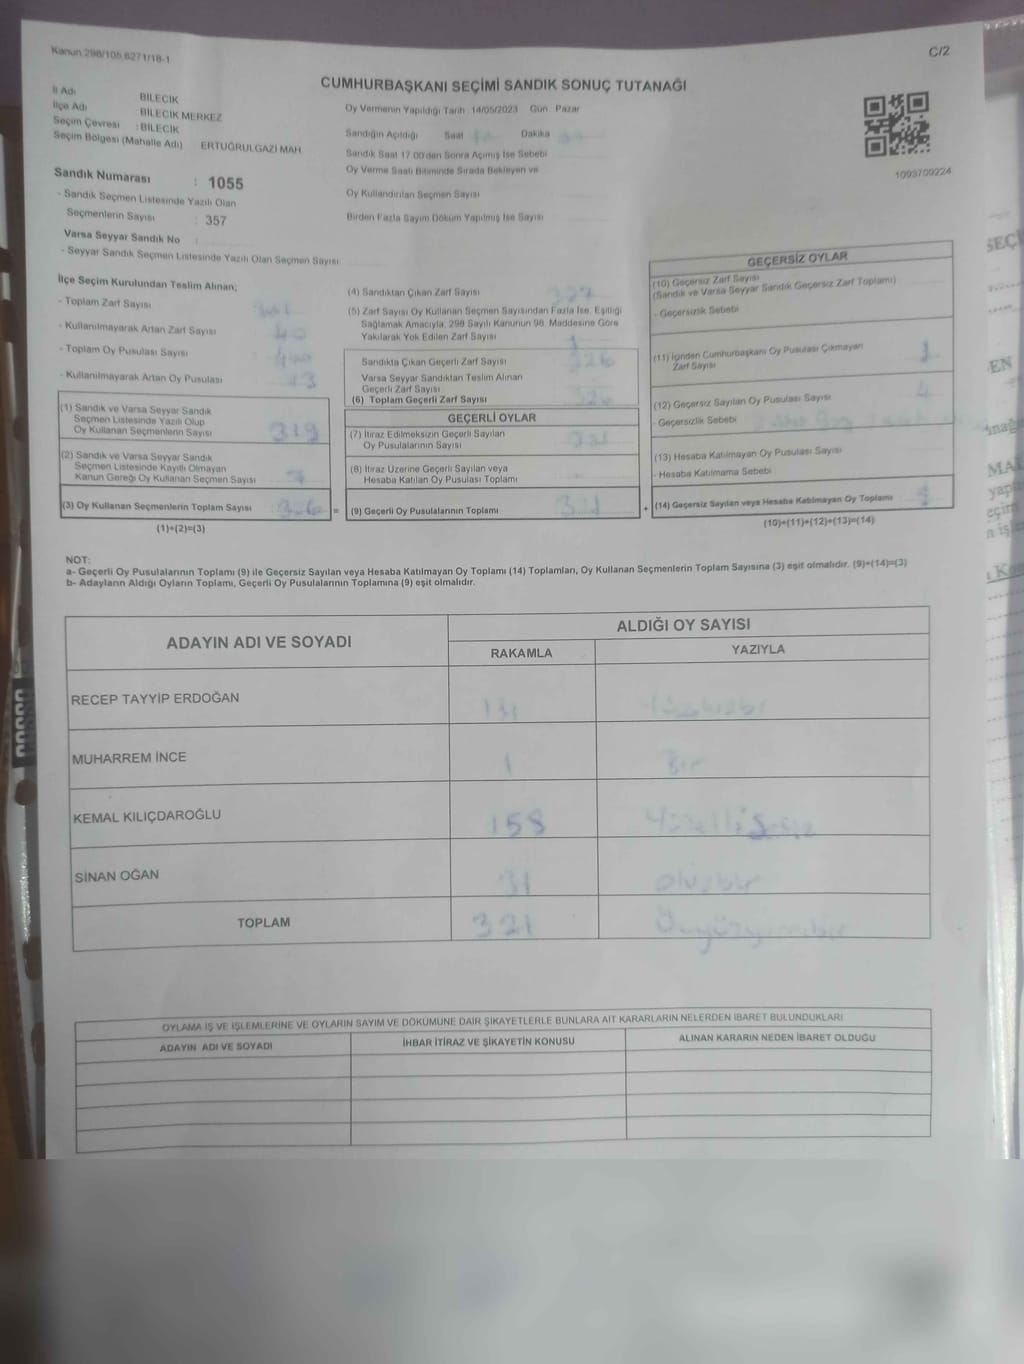 Kanun:298/105,6271/18-1
C/2
CUMHURBAŞKANI SEÇİMİ SANDIK SONUÇ TUTANAĞI
İl Adı : BİLECİK
İlçe Adı : BİLECİK MERKEZ
Seçim Çevresi : BİLECİK
Seçim Bölgesi (Mahalle Adı) ERTUĞRULGAZİ MAH.
Oy Vermenin Yapıldığı Tarih 14/05/2023 Gün Pazar
Sandığın Açıldığı Saat Dakika
Sandık Saat 17.00'den Sonra Açılmış İse Sebebi
Oy Verme Saati Bitiminde Sırada Bekleyen ve
Oy Kullandırılan Seçmen Sayısı
Birden Fazla Sayım Döküm Yapılmış İse Sayısı
1093709224
Sandık Numarası : 1055
- Sandık Seçmen Listesinde Yazılı Olan
Seçmenlerin Sayısı : 357
Varsa Seyyar Sandık No :
- Seyyar Sandık Seçmen Listesinde Yazılı Olan Seçmen Sayısı
İlçe Seçim Kurulundan Teslim Alınan;
- Toplam Zarf Sayısı
- Kullanılmayarak Artan Zarf Sayısı 40
- Toplam Oy Pusulası Sayısı
- Kullanılmayarak Artan Oy Pusulası
(1) Sandık ve Varsa Seyyar Sandık
Seçmen Listesinde Yazılı Olup
Oy Kullanan Seçmenlerin Sayısı 319
(2) Sandık ve Varsa Seyyar Sandık
Seçmen Listesinde Kayıtlı Olmayan
Kanun Gereği Oy Kullanan Seçmen Sayısı 7
(3) Oy Kullanan Seçmenlerin Toplam Sayısı 326 =
(1)+(2)=(3)
(4) Sandıktan Çıkan Zarf Sayısı 327
(5) Zarf Sayısı Oy Kullanan Seçmen Sayısından Fazla İse, Eşitliği
Sağlamak Amacıyla, 298 Sayılı Kanunun 98. Maddesine Göre
Yakılarak Yok Edilen Zarf Sayısı 1
Sandıkta Çıkan Geçerli Zarf Sayısı 326
Varsa Seyyar Sandıktan Teslim Alınan
Geçerli Zarf Sayısı
(6) Toplam Geçerli Zarf Sayısı 326
GEÇERLİ OYLAR
(7) İtiraz Edilmeksizin Geçerli Sayılan
Oy Pusulalarının Sayısı 321
(8) İtiraz Üzerine Geçerli Sayılan veya
Hesaba Katılan Oy Pusulası Toplamı
(9) Geçerli Oy Pusulalarının Toplamı 321 +
GEÇERSİZ OYLAR
(10) Geçersiz Zarf Sayısı
(Sandık ve Varsa Seyyar Sandık Geçersiz Zarf Toplamı)
- Geçersizlik Sebebi
(11) İçinden Cumhurbaşkanı Oy Pusulası Çıkmayan
Zarf Sayısı 1
(12) Geçersiz Sayılan Oy Pusulası Sayısı 4
- Geçersizlik Sebebi
(13) Hesaba Katılmayan Oy Pusulası Sayısı
- Hesaba Katılmama Sebebi
(14) Geçersiz Sayılan veya Hesaba Katılmayan Oy Toplamı 5
(10)+(11)+(12)+(13)=(14)
NOT:
a- Geçerli Oy Pusulalarının Toplamı (9) ile Geçersiz Sayılan veya Hesaba Katılmayan Oy Toplamı (14) Toplamları, Oy Kullanan Seçmenlerin Toplam Sayısına (3) eşit olmalıdır. (9)+(14)=(3)
b- Adayların Aldığı Oyların Toplamı, Geçerli Oy Pusulalarının Toplamına (9) eşit olmalıdır.
ADAYIN ADI VE SOYADI
ALDIĞI OY SAYISI
RAKAMLA YAZIYLA
RECEP TAYYİP ERDOĞAN 131 Yüzotuzbir
MUHARREM İNCE 1 Bir
KEMAL KILIÇDAROĞLU 158 Yüzellisekiz
SİNAN OĞAN 31 otuzbir
TOPLAM 321 Üçyüzyirmibir
OYLAMA İŞ VE İŞLEMLERİNE VE OYLARIN SAYIM VE DÖKÜMÜNE DAİR ŞİKAYETLERLE BUNLARA AİT KARARLARIN NELERDEN İBARET BULUNDUKLARI
ADAYIN ADI VE SOYADI İHBAR İTİRAZ VE ŞİKAYETİN KONUSU ALINAN KARARIN NEDEN İBARET OLDUĞU